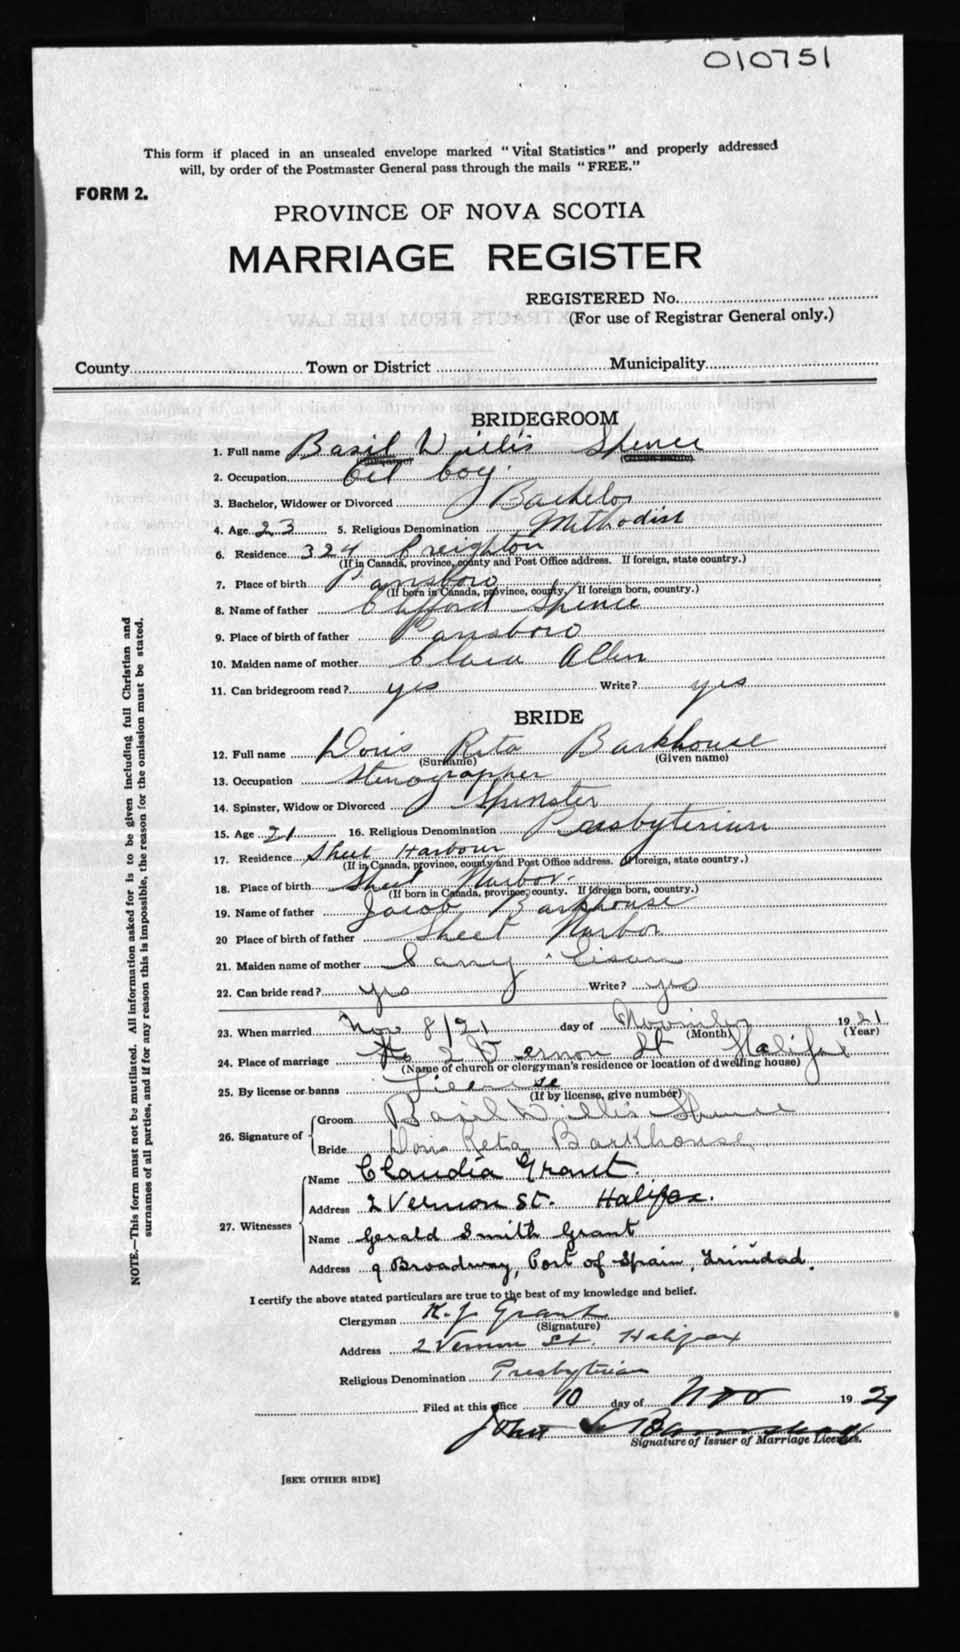 010751
This form if placed in an unsealed envelope marked "Vital Statistics" and properly addressed
will, by order of the Postmaster General pass through the mails "FREE."
FORM 2.
PROVINCE OF NOVA SCOTIA
MARRIAGE REGISTER
REGISTERED No.
(For use of Registrar General only.)
County Town or District Municipality
BRIDEGROOM
1. Full name Basil Willis Spence
2. Occupation Oil Coy.
3. Bachelor, Widower or Divorced Bachelor
4. Age 23 5. Religious Denomination Methodist
6. Residence 324 Creighton
(If in Canada, province, county and Post Office address. If foreign, state country.)
7. Place of birth Parrsboro
(If born in Canada, province, county. If foreign born, country.)
8. Name of father Clifford Spence
9. Place of birth of father Parrsboro
10. Maiden name of mother Clara Allen
11. Can bridegroom read? yes Write? yes
BRIDE
12. Full name Doris Reta Barkhouse
(Surname) (Given name)
13. Occupation Stenographer
14. Spinster, Widow or Divorced Spinster
15. Age 21 16. Religious Denomination Presbyterian
17. Residence Sheet Harbour
(If in Canada, province, county and Post Office address. If foreign, state country.)
18. Place of birth Sheet Harbor
(If born in Canada, province, county. If foreign born, country.)
19. Name of father Jacob Barkhouse
20 Place of birth of father Sheet Harbor
21. Maiden name of mother
22. Can bride read? yes Write? yes
23. When married Nov 8/21 day of November 1921
(Month) (Year)
24. Place of marriage No 2 Vernon St Halifax
(Name of church or clergyman's residence or location of dwelling house)
25. By license or banns License
(If by license, give number)
26. Signature of Groom Basil Willis Spence
Bride Doris Reta Barkhouse
27. Witnesses Name Claudia Grant
Address 2 Vernon St. Halifax.
Name Gerald Smith Grant
Address 9 Broadway, Port of Spain, Trinidad.
I certify the above stated particulars are true to the best of my knowledge and belief.
Clergyman K. J. Grant
(Signature)
Address 2 Vernon St. Halifax
Religious Denomination Presbyterian
Filed at this office 10 day of Nov 1921
John
Signature of Issuer of Marriage Licenses.
[SEE OTHER SIDE]
NOTE.—This form must not be mutilated. All information asked for is to be given including full Christian and
surnames of all parties, and if for any reason this is impossible, the reason for the omission must be stated.